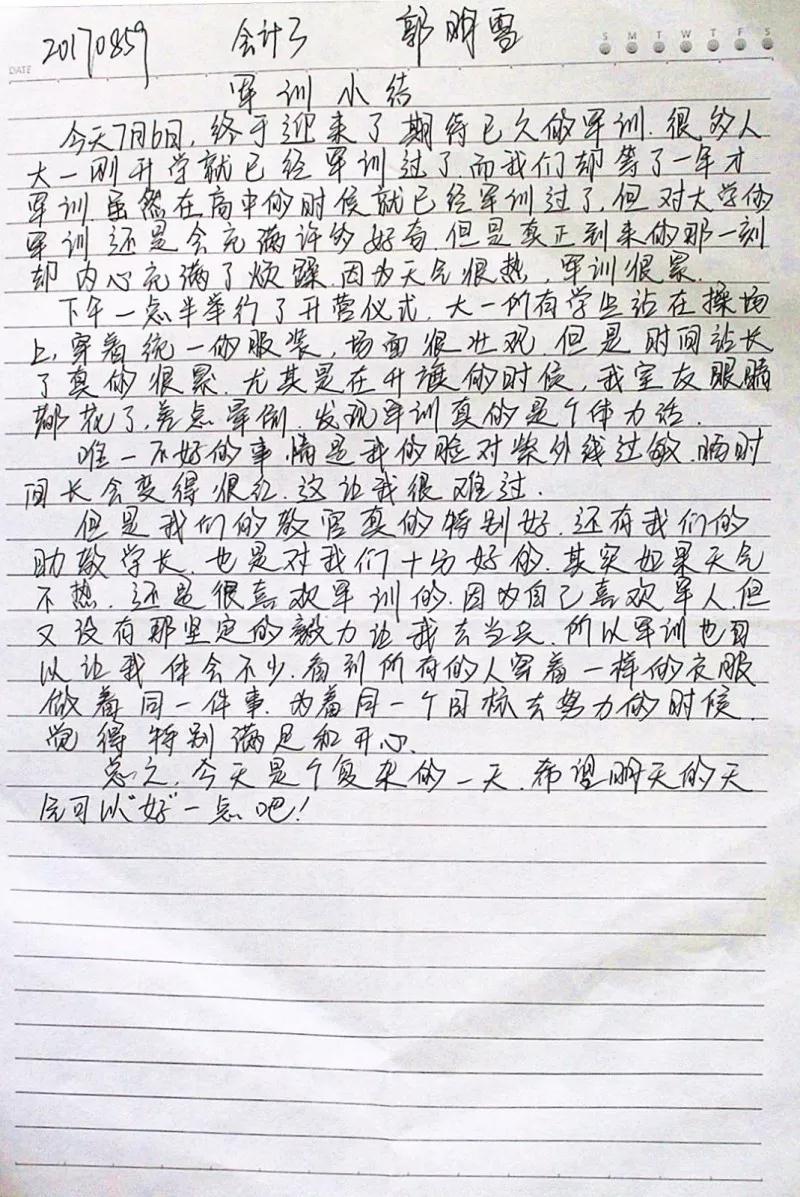 20170859 会计3 郭明雪
S M T W T F S
DATE
军训小结
今天7月6日,终于迎来了期待已久的军训.很多人
大一刚开学就已经军训过了.而我们却等了一年才
军训.虽然在高中的时候就已经军训过了,但对大学的
军训还是会充满许多好奇,但是真正到来的那一刻
却内心充满了烦躁.因为天气很热,军训很累.
下午一点半举行了开营仪式.大一所有学生站在操场
上,穿着统一的服装,场面很壮观.但是时间站长
了真的很累.尤其是在升旗的时候,我室友眼睛
都花了,差点晕倒.发现军训真的是个体力活.
唯一不好的事情是我的脸对紫外线过敏.晒时
间长会变得很红.这让我很难过.
但是我们的教官真的特别好.还有我们的
助教学长.也是对我们十分好的.其实如果天气
不热.还是很喜欢军训的.因为自己喜欢军人,但
又没有那坚定的毅力让我去当兵.所以军训也可
以让我体会不少.看到所有的人穿着一样的衣服
做着同一件事.为着同一个目标去努力的时候.
觉得特别满足和开心.
总之,今天是个复杂的一天.希望明天的天
气可以"好"一点吧!